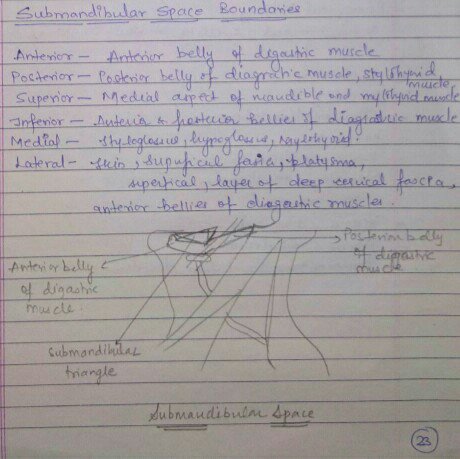 Submandibular Space Boundaries
Anterior — Anterior belly of digastric muscle
Posterior — Posterior belly of diagratric muscle, stylohyoid muscle,
Superior — Medial aspect of mandible and mylohyoid muscle
Inferior — Anterior & posterior bellies of diagastric muscle
Medial — styloglossus, hyoglossus, mylohyoid.
Lateral — skin, supufical fasia, platysma,
superfical, layer of deep cervical fascia,
anterior bellies of diagastric muscles.
Anterior belly
of digastric
muscle.
Posterior belly
of diggastric
muscle
Submandibular
triangle
Submandibular Space
23